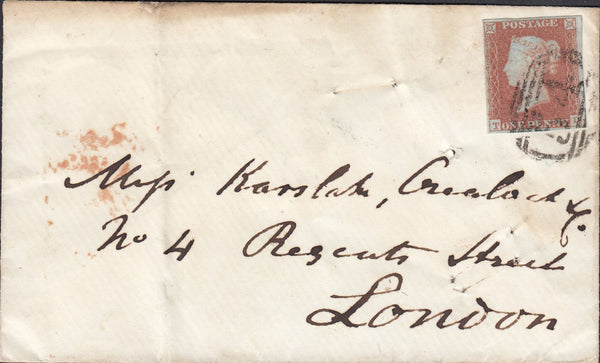 POSTAGE
ONE PENNY
Messrs Karslake, Crealock & Co.
No 4 Regents Street
London